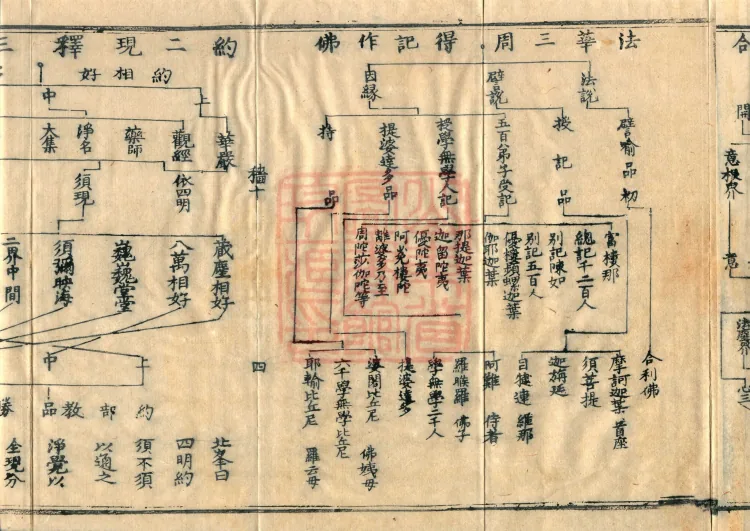 合
開
意根界
意
法華三周得記作佛
法說
譬說
因緣
譬喻品初
授記品
五百弟子受記
授學無學人記
提婆達多品
持品
富樓那
總記千二百人
別記陳如
別記五百人
優樓頻螺迦葉
伽耶迦葉
那提迦葉
迦留陀夷
優陀夷
阿㝹樓陀
離婆多乃至
周陀莎伽陀等
舍利佛
摩訶迦葉 首座
須菩提
迦旃延
目犍連 維那
阿難 侍者
羅睺羅 佛子
學無學二千人
提婆達多
婆闍比丘尼 佛姨母
六千學無學比丘尼
耶輸比丘尼 羅云母
四
約二現釋三
約相好
上
中
華嚴
觀經 依四明
藥師
淨名
大集
須現
藏塵相好
八萬相好
巍巍堂堂
須彌映海
二界中間
上
中
約部教品勝
北峯曰
四明約
須不須
以通之
淨覺以
全現分